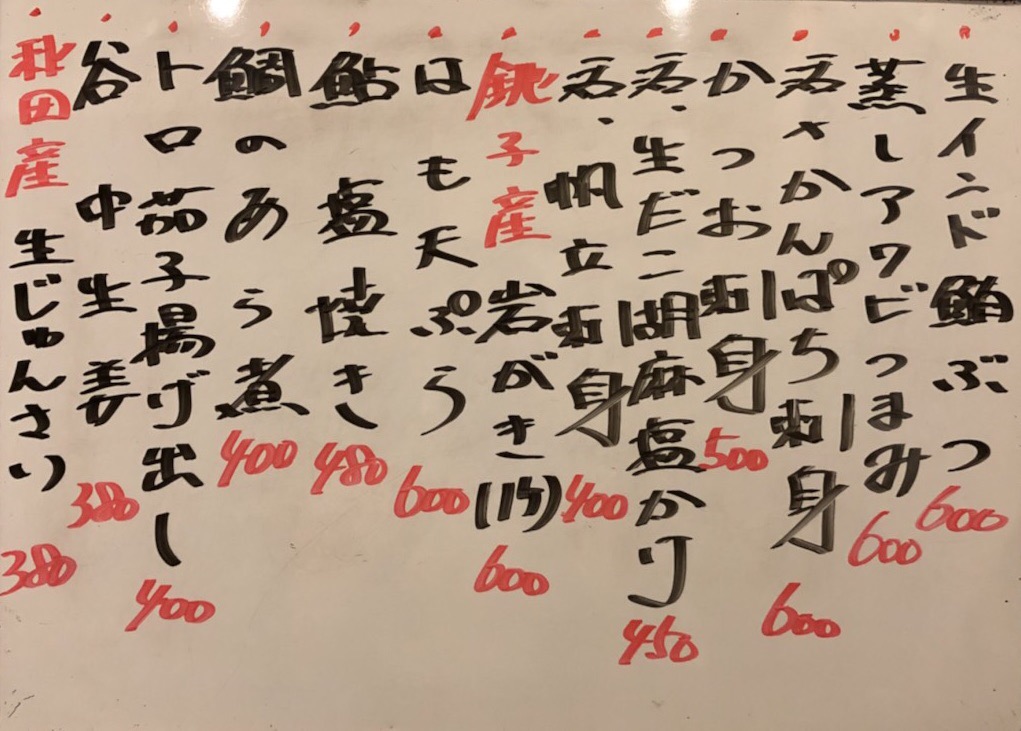 生インド鮪ぶつ 600
蒸しアワビつまみ 600
活〆かんぱち刺身 600
かつお刺身 500
活、生だこ胡麻塩かけ 450
活、帆立刺身 400
銚子産 岩がき(1ケ) 600
はも天ぷら 600
鮎塩焼き 480
鯛のあら煮 400
トロ茄子揚げ出し 400
谷中生姜 380
秋田産 生じゅんさい 380